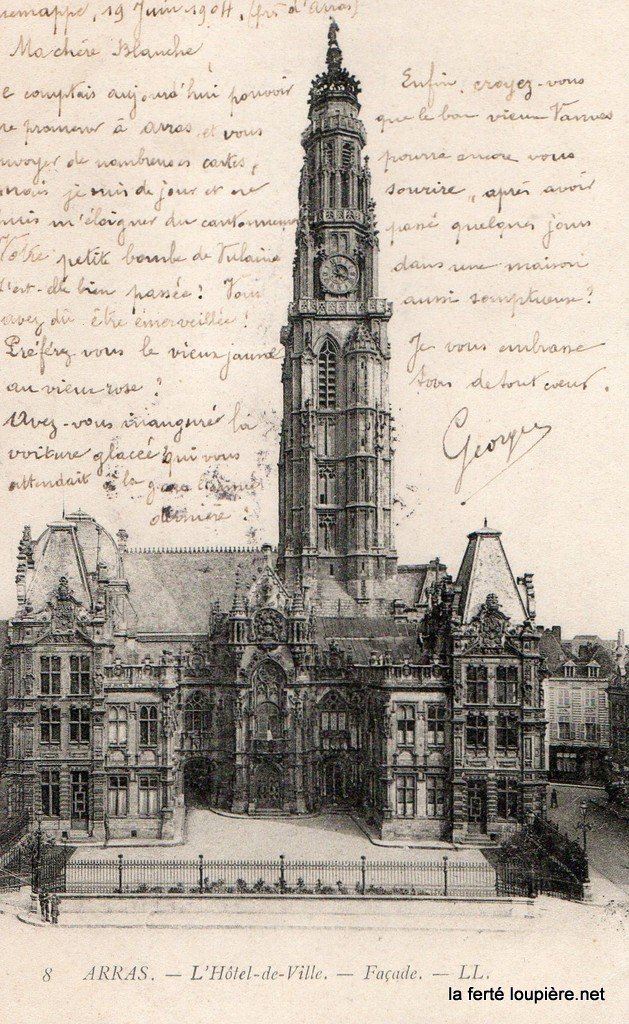 19 Juin 1904, (près d'Arras)
Ma chère Blanche,
comptais aujourd'hui pouvoir
promener à arras et vous
envoyer de nombreuses cartes,
mais je suis de jour et ne
puis m'éloigner du cantonnement
Votre petite bombe de
s'est-elle bien passée? Vous
avez dû être émerveillée!
Préférez-vous le vieux jaune
au vieux rose?
Avez-vous inauguré la
voiture glacée qui vous
attendait à la gare
dernière?
Enfin, croyez-vous
que le bon vieux Vanves
pourra encore vous
sourire, après avoir
passé quelques jours
dans une maison
aussi somptueuse?
Je vous embrasse
tous de tout coeur.
Georges
8 ARRAS. — L'Hôtel-de-Ville. — Façade. — LL.
la ferté loupière.net